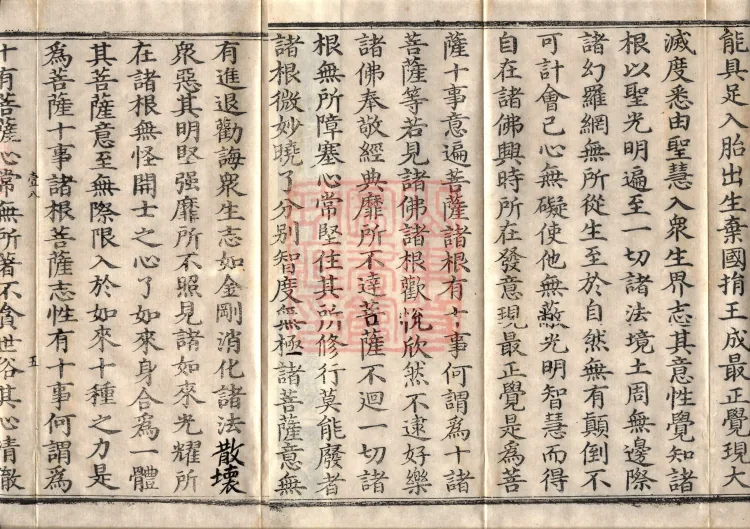 能具足入胎出生棄國捐王成最正覺現大
滅度悉由聖慧入眾生界志其意性覺知諸
根以聖光明遍至一切諸法境土周無邊際
諸幻羅網無所從生至於自然無有顛倒不
可計會己心無礙使他無蔽光明智慧而得
自在諸佛興時所在發意現最正覺是為菩
薩十事意遍菩薩諸根有十事何謂為十諸
菩薩等若見諸佛諸根歡悅欣然不逮好樂
諸佛奉敬經典靡所不達菩薩不迴一切諸
根無所障塞心常堅住其所修行莫能廢者
諸根微妙曉了分别智度無極諸菩薩意無
有進退勸誨眾生志如金剛消化諸法散壞
眾惡其明堅强靡所不照見諸如來光耀所
在諸根無怪開士之心了如來身合為一體
其菩薩意至無際限入於如來十種之力是
為菩薩十事諸根菩薩志性有十事何謂為
十有菩薩心常無所著不貪世俗其心清徹
壹八
五